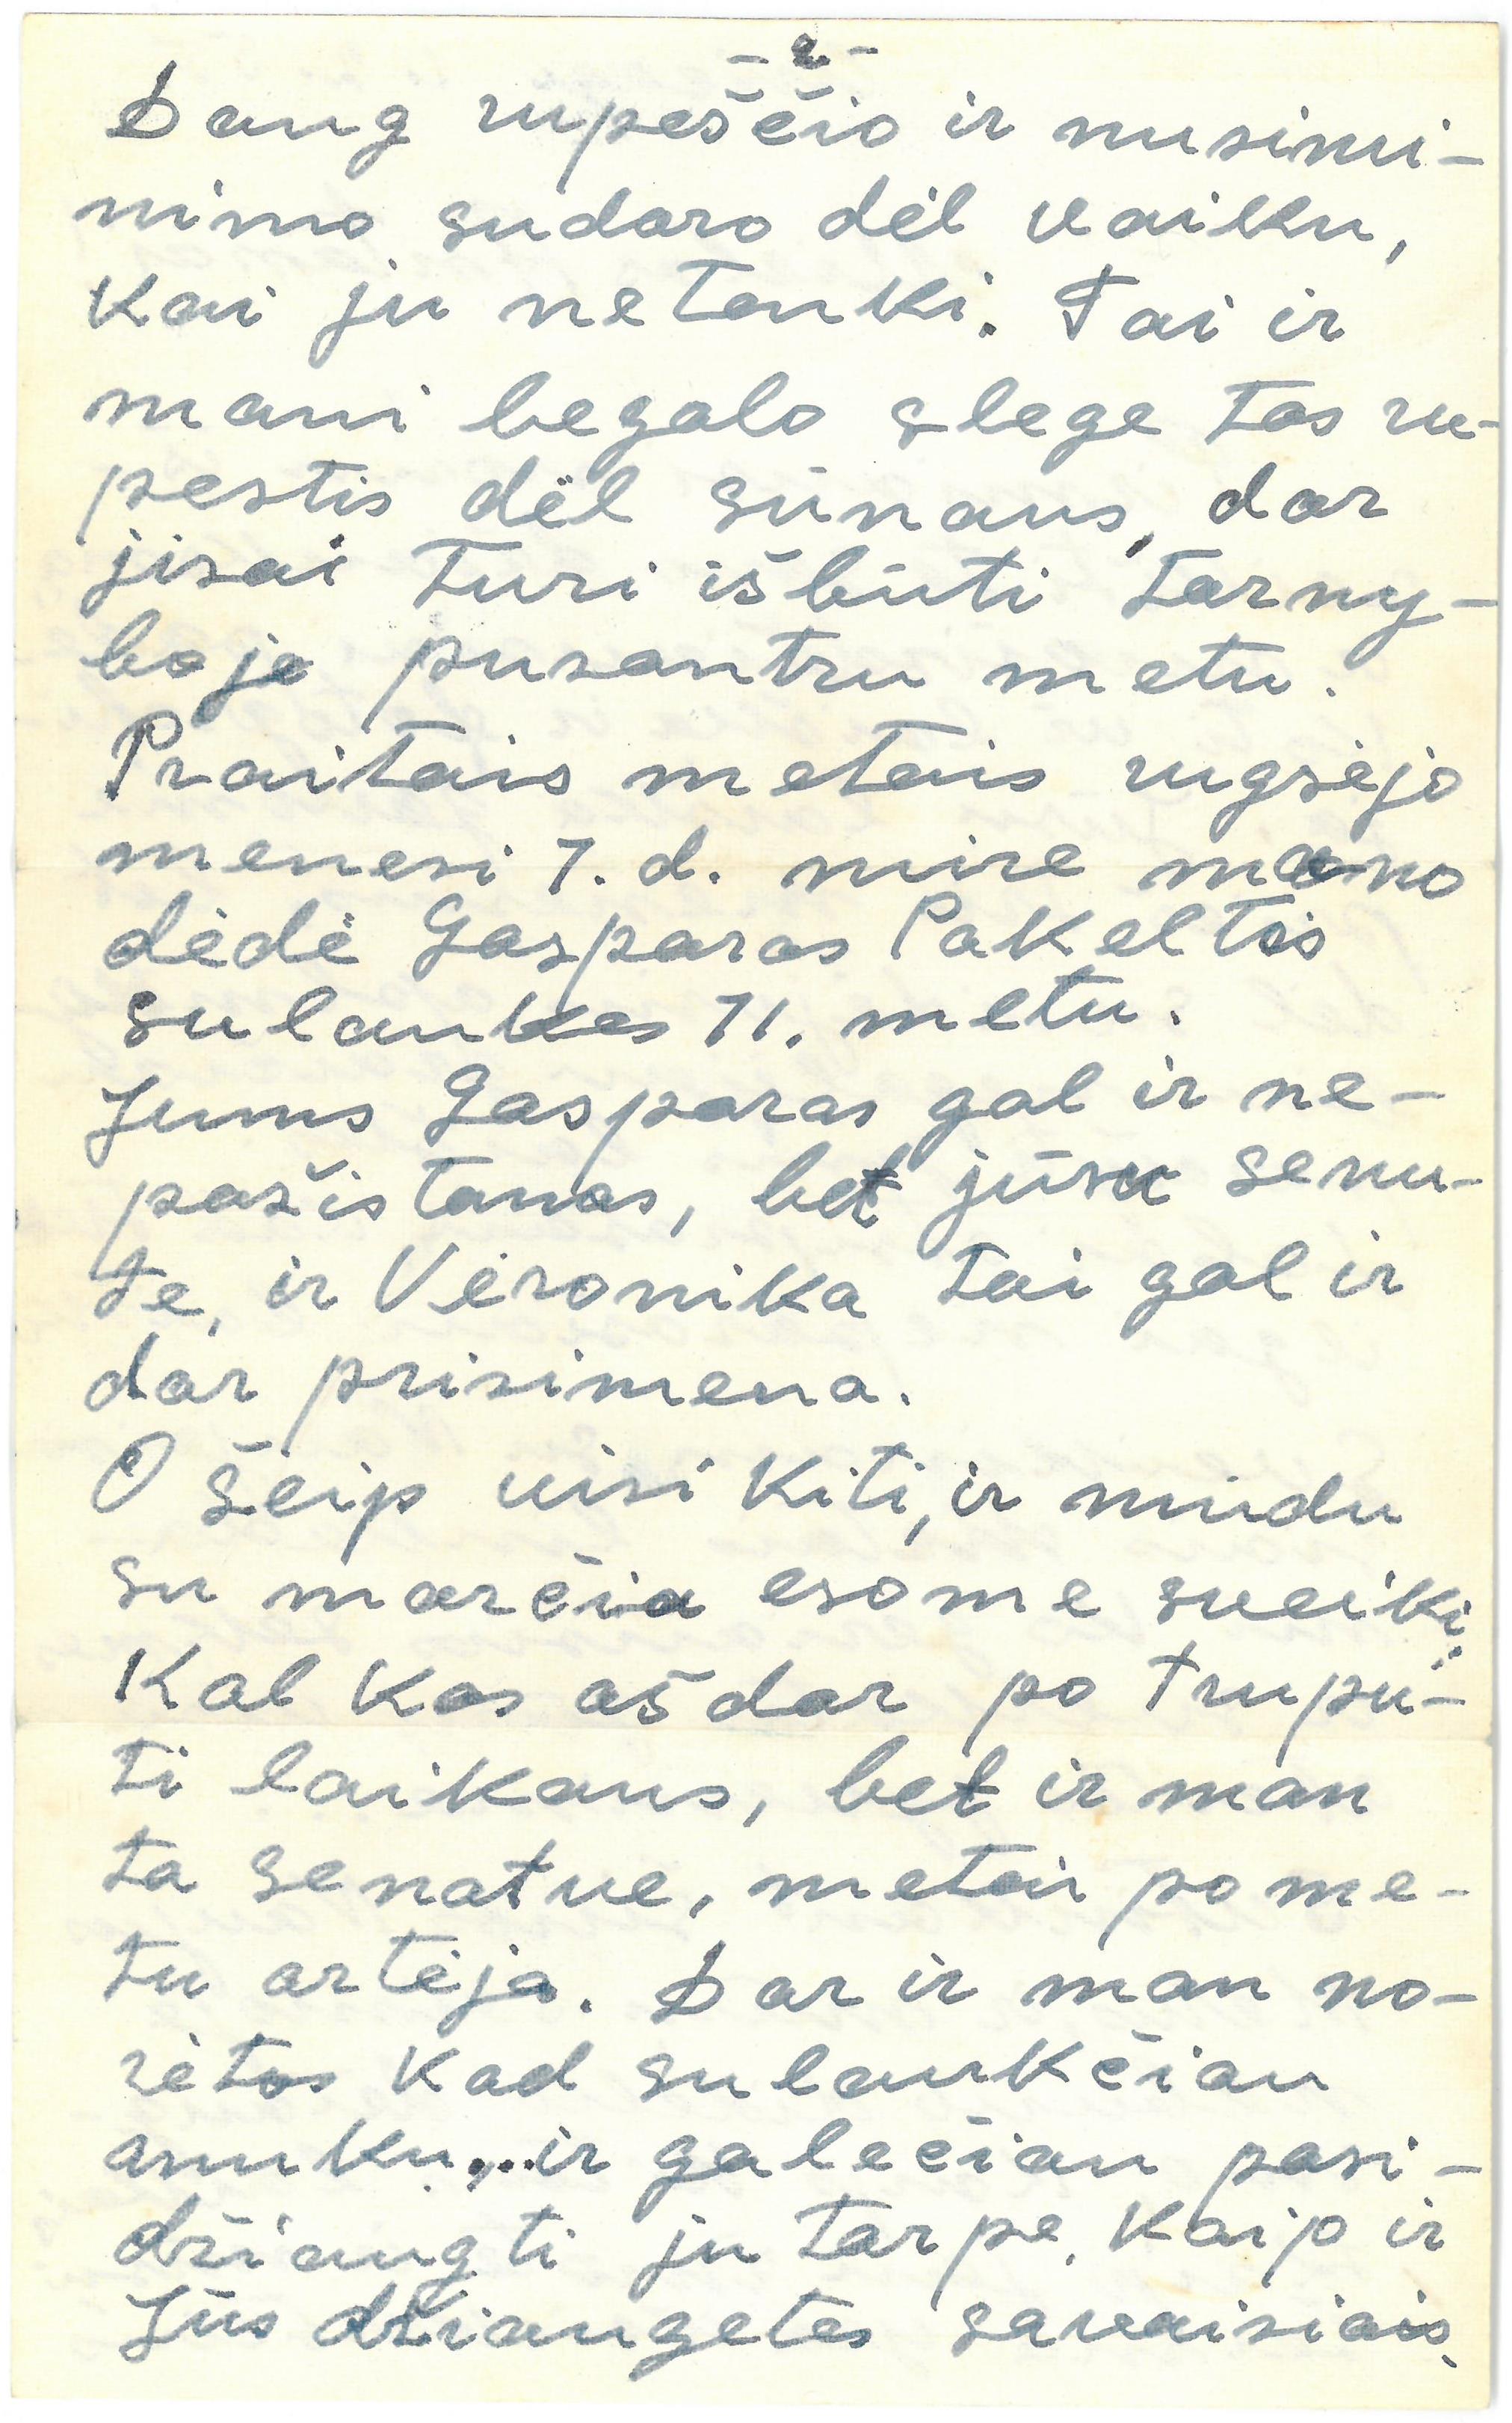 -2-
Daug rupeščio ir nusimi-
nimo sudaro dėl vaiku,
kai ju netenki. Tai ir
mani begalo slege tas ru-
pestis dėl sūnaus, dar
jisai turi išbūti tarny-
boje pusantru metu.
Praitais metais rugsėjo
menesi 7. d. mire mano
dėdė Gasparas Pakeltis
sulaukes 71. metu.
Jums Gasparas gal ir ne-
pažistamas, bet jūsu senu-
te, ir Veronika tai gal ir
dar prisimena.
O šeip visi kiti, ir mudu
su marčia esome sveiki.
Kal kas aš dar po trupu-
ti laikaus, bet ir man
ta senatve, metai po me-
tu artėja. Dar ir man no-
rėtos kad sulaukčiau
anuku... ir galečiau pasi-
džiaugti ju tarpe. Kaip ir
Jūs džiaugetes savaisiais.